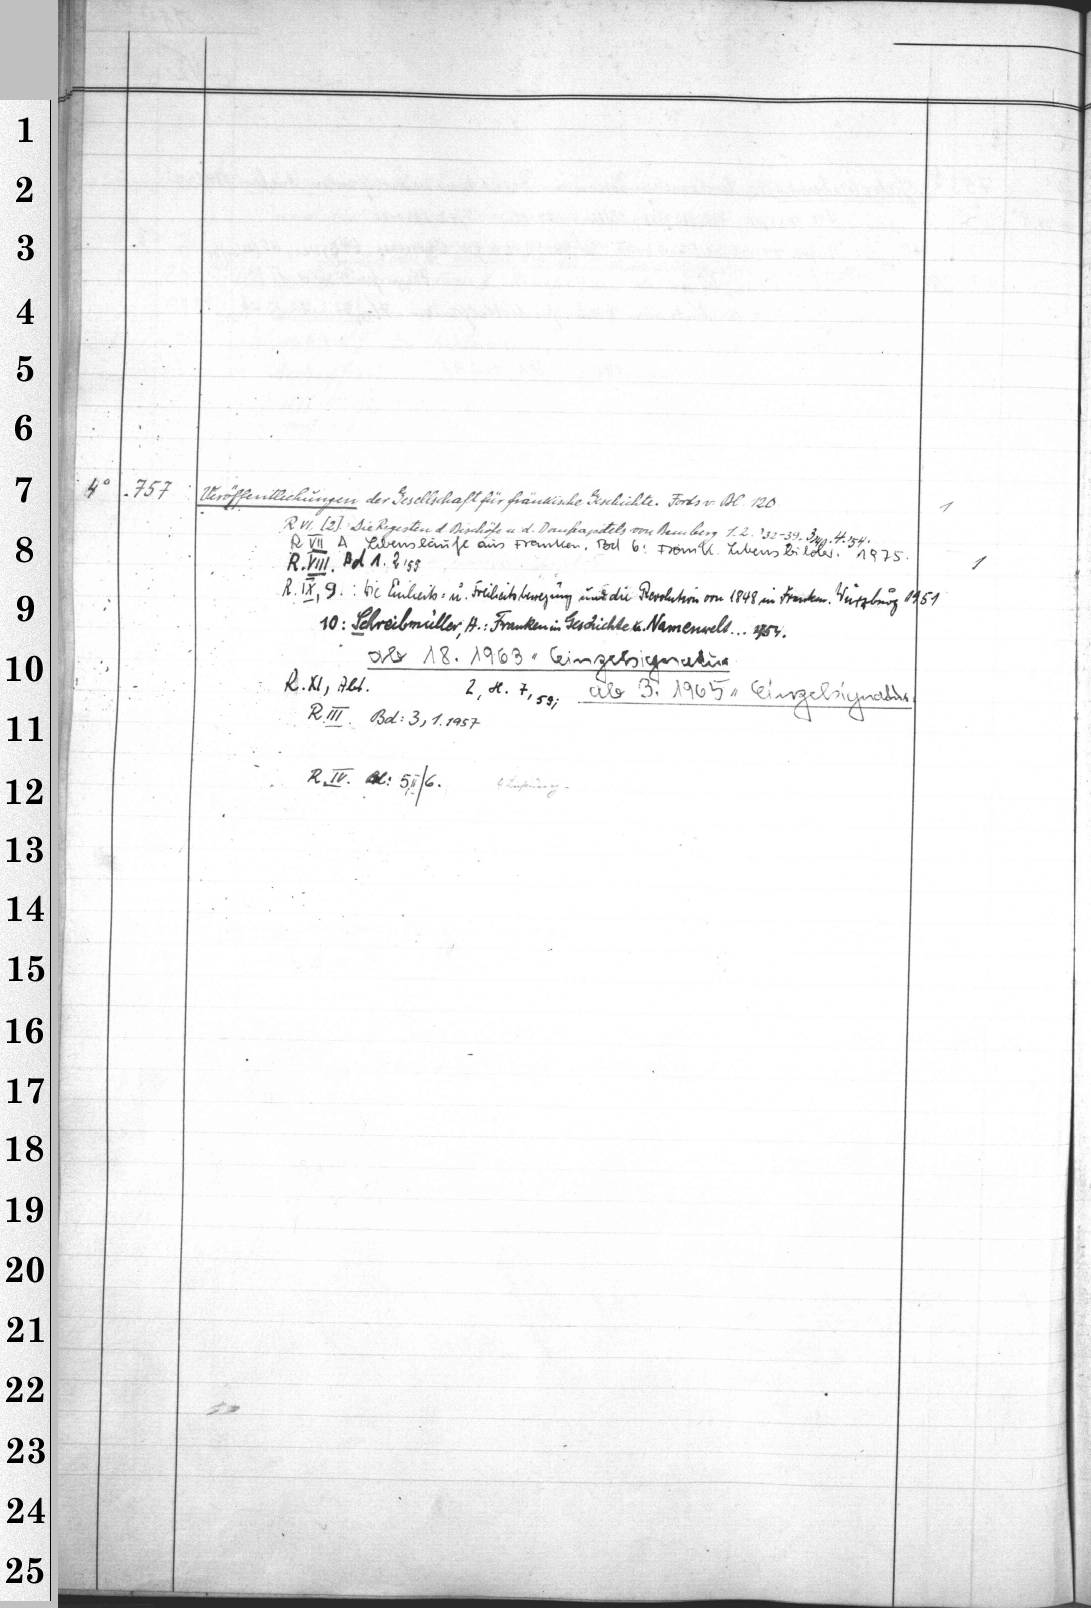 1
2
3
4
5
6
7
4° 757 Veröffentlichungen der Gesellschaft für fränkische Geschichte. Forts v. Bl. 120 1
R VI. [2] Die Regesten d. Bischöfe u. d. Domkapitels von Bamberg 1. 2. '32-39. 3/40. 4. '54.
8
R VII A Lebensläufe aus Franken. Bd 6: Fränk. Lebensbilder. 1975. 1
R. VIII. Bd 1. 2 '55
9
R. IX, 9.: Die Einheits- u. Freiheitsbewegung und die Revolution von 1848 in Franken. Würzburg 1951
10: Schreibmüller, H.: Franken in Geschichte u. Namenwelt... 1954.
10
ab 18. 1963 " Einzelsignatur
R. XI, Abt. 2, H. 7, 59; ab 3. 1965 " Einzelsignatur
11
R. III. Bd: 3, 1. 1957
12
R. IV. Bd: 5,II/6.
13
14
15
16
17
18
19
20
21
22
23
24
25